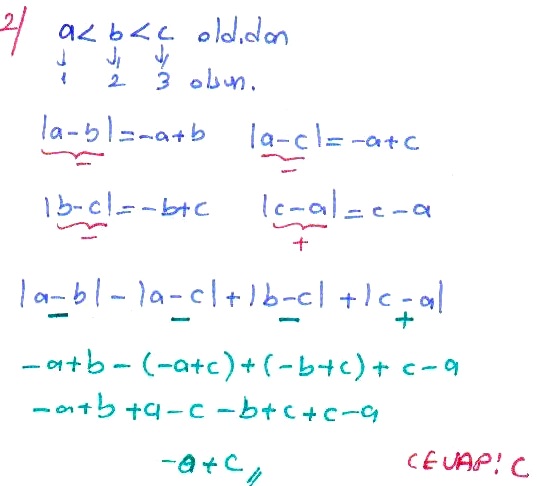 2/ a < b < c old.dan
↓ ↓ ↓
1 2 3 olsun.
|a-b| = -a+b |a-c| = -a+c
- -
|b-c| = -b+c |c-a| = c-a
- +
|a-b| - |a-c| + |b-c| + |c-a|
- - - +
-a+b - (-a+c) + (-b+c) + c-a
-a+b+a-c-b+c+c-a
-a+c //
CEVAP: C